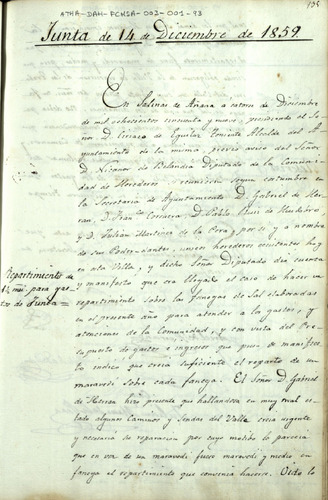 ATHA-DAH-FCMSA-003-001-93
Junta de 14 de Diciembre de 1859.
En Salinas de Añana a catorce de Diciembre
de mil ochocientos cincuenta y nueve, presidiendo el Se
ñor D. Ciriaco de Eguiluz Teniente Alcalde del A
yuntamiento de la misma, previo aviso del Señor
D. Nicanor de Belandia Diputado de la Comuni
dad de Herederos, reunieron segun costumbre en
la Secretaria de Ayuntamiento D. Gabriel de Her
ran, D. Pablo Ruiz de
y D. Julian Martinez de la Pera, por si y a nombre
de sus Poder-dantes, unicos herederos ecsistentes hoy
en esta Villa, y dicho Señor Diputado dió cuenta
y manifestó que era llegado el caso de hacer un
repartimiento sobre las fanegas de Sal elaboradas
en el presente año para atender a los gastos, y
atenciones de la Comunidad, y con vista del Pre
supuesto de gastos e ingresos que puso de manifiesto,
les indicó que creia suficiente el reparto de un
maravedi sobre cada fanega. El Señor D. Gabriel
de Herran hizo presente que hallandose en muy mal es
tado algunos Caminos y Sendas del Valle creia urgente
y necesaria su reparacion por cuyo motivo le parecia
que en vez de un maravedi fuese maravedi y medio en
fanega el repartimiento que convenia hacerse. Oido lo
Repartimiento de
1½ para gas
tos de Junta=